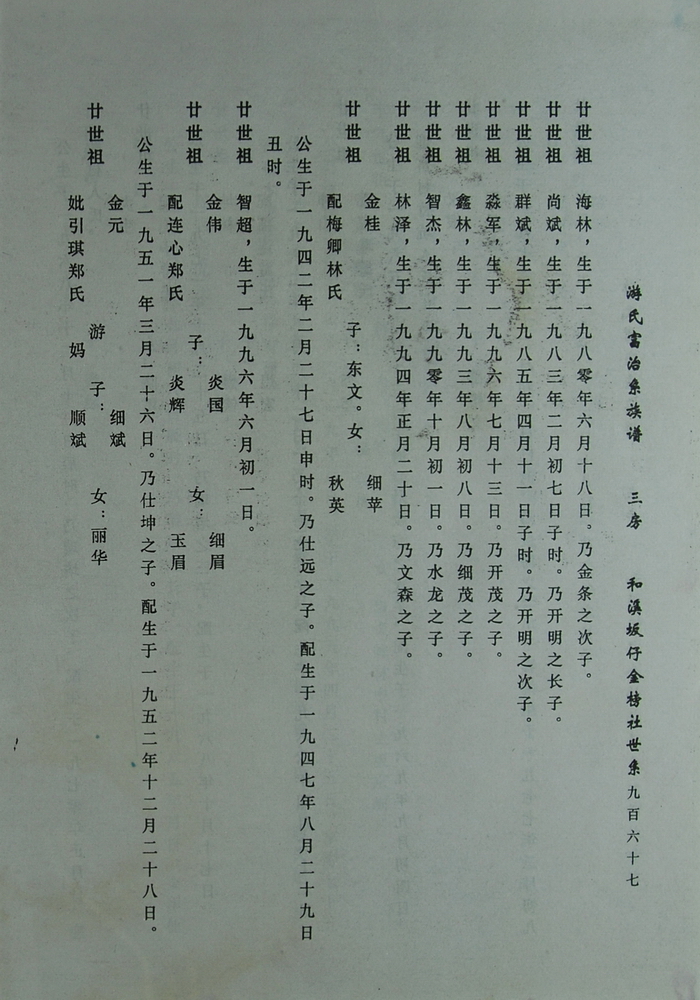 游氏富治系族谱 三房 和溪坂仔金榜社世系 九百六十七
廿世祖 海林，生于一九八零年六月十八日。乃金条之次子。
廿世祖 尚斌，生于一九八三年二月初七日子时。乃开明之长子。
廿世祖 群斌，生于一九八五年四月十一日子时。乃开明之次子。
廿世祖 淼军，生于一九九六年七月十三日。乃开茂之子。
廿世祖 鑫林，生于一九九三年八月初八日。乃细茂之子。
廿世祖 智杰，生于一九九零年十月初一日。乃水龙之子。
廿世祖 林泽，生于一九九四年正月二十日。乃文森之子。
廿世祖 金桂 配梅卿林氏 子：东文。女：细苹 秋英
公生于一九四二年二月二十七日申时。乃仕远之子。配生于一九四七年八月二十九日
丑时。
廿世祖 智超，生于一九九六年六月初一日。
廿世祖 金伟 配连心郑氏 子：炎国 炎辉 女：细眉 玉眉
公生于一九五一年三月二十六日。乃仕坤之子。配生于一九五二年十二月二十八日。
廿世祖 金元 妣引琪郑氏 游妈 子：细斌 顺斌 女：丽华